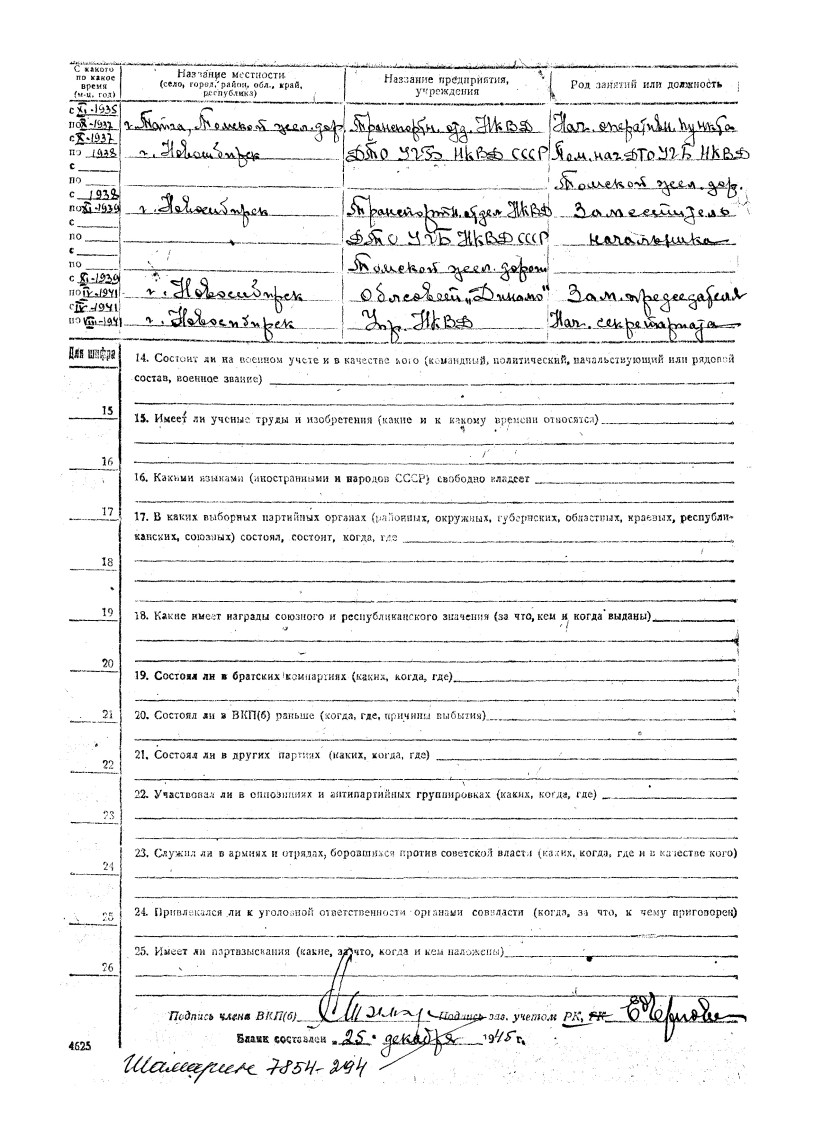 С какого по какое время (м-ц, год)
Название местности (село, город, район, обл., край, республика)
Название предприятия, учреждения
Род занятий или должность
с XI-1935
по X-1937 г. Тайга, Томской жел. дор. Транспортн. отд. НКВД Нач. оперативн. пункта
с X-1937
по 1938 г. Новосибирск ДТО УГБ НКВД СССР Пом. нач ДТО УГБ НКВД
с
по Томской жел. дор.
с 1938
по XI-1939 г. Новосибирск Транспортн. отдел НКВД Заместитель
с
по ДТО УГБ НКВД СССР начальника
с
по Томской жел. дорог
с XI-1939
по IV-1941 г. Новосибирск Облсовет „Динамо" Зам. председателя
с IV-1941
по VIII-1941 г. Новосибирск Упр. НКВД Нач. секретариата
Для шифра
14. Состоит ли на военном учете и в качестве кого (командный, политический, начальствующий или рядовой
состав, военное звание)
15
15. Имеет ли ученые труды и изобретения (какие и к какому времени относятся)
16
16. Какими языками (иностранными и народов СССР) свободно владеет
17
17. В каких выборных партийных органах (районных, окружных, губернских, областных, краевых, республи-
канских, союзных) состоял, состоит, когда, где
18
19
18. Какие имеет награды союзного и республиканского значения (за что, кем и когда выданы)
20
19. Состоял ли в братских компартиях (каких, когда, где)
21
20. Состоял ли в ВКП(б) раньше (когда, где, причины выбытия)
22
21. Состоял ли в других партиях (каких, когда, где)
22. Участвовал ли в оппозициях и антипартийных группировках (каких, когда, где)
23
23. Служил ли в армиях и отрядах, боровшихся против советской власти (каких, когда, где и в качестве кого)
24
25
24. Привлекался ли к уголовной ответственности органами совзласти (когда, за что, к чему приговорен)
25. Имеет ли партвзыскания (какие, за что, когда и кем наложены)
26
Подпись члена ВКП(б) Подпись зав. учетом РК, ГК
Бланк составлен „25" декабря 1945 г.
4625
Шамарин 7854-294